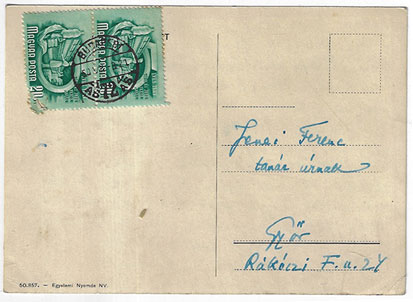 MAGYAR POSTA
MAGYAR POSTA
20f
BUDAPEST
Jenei Ferenc
tanár úrnak
Győr
Rákóczi F. u. 24
50.957. — Egyetemi Nyomda NV.